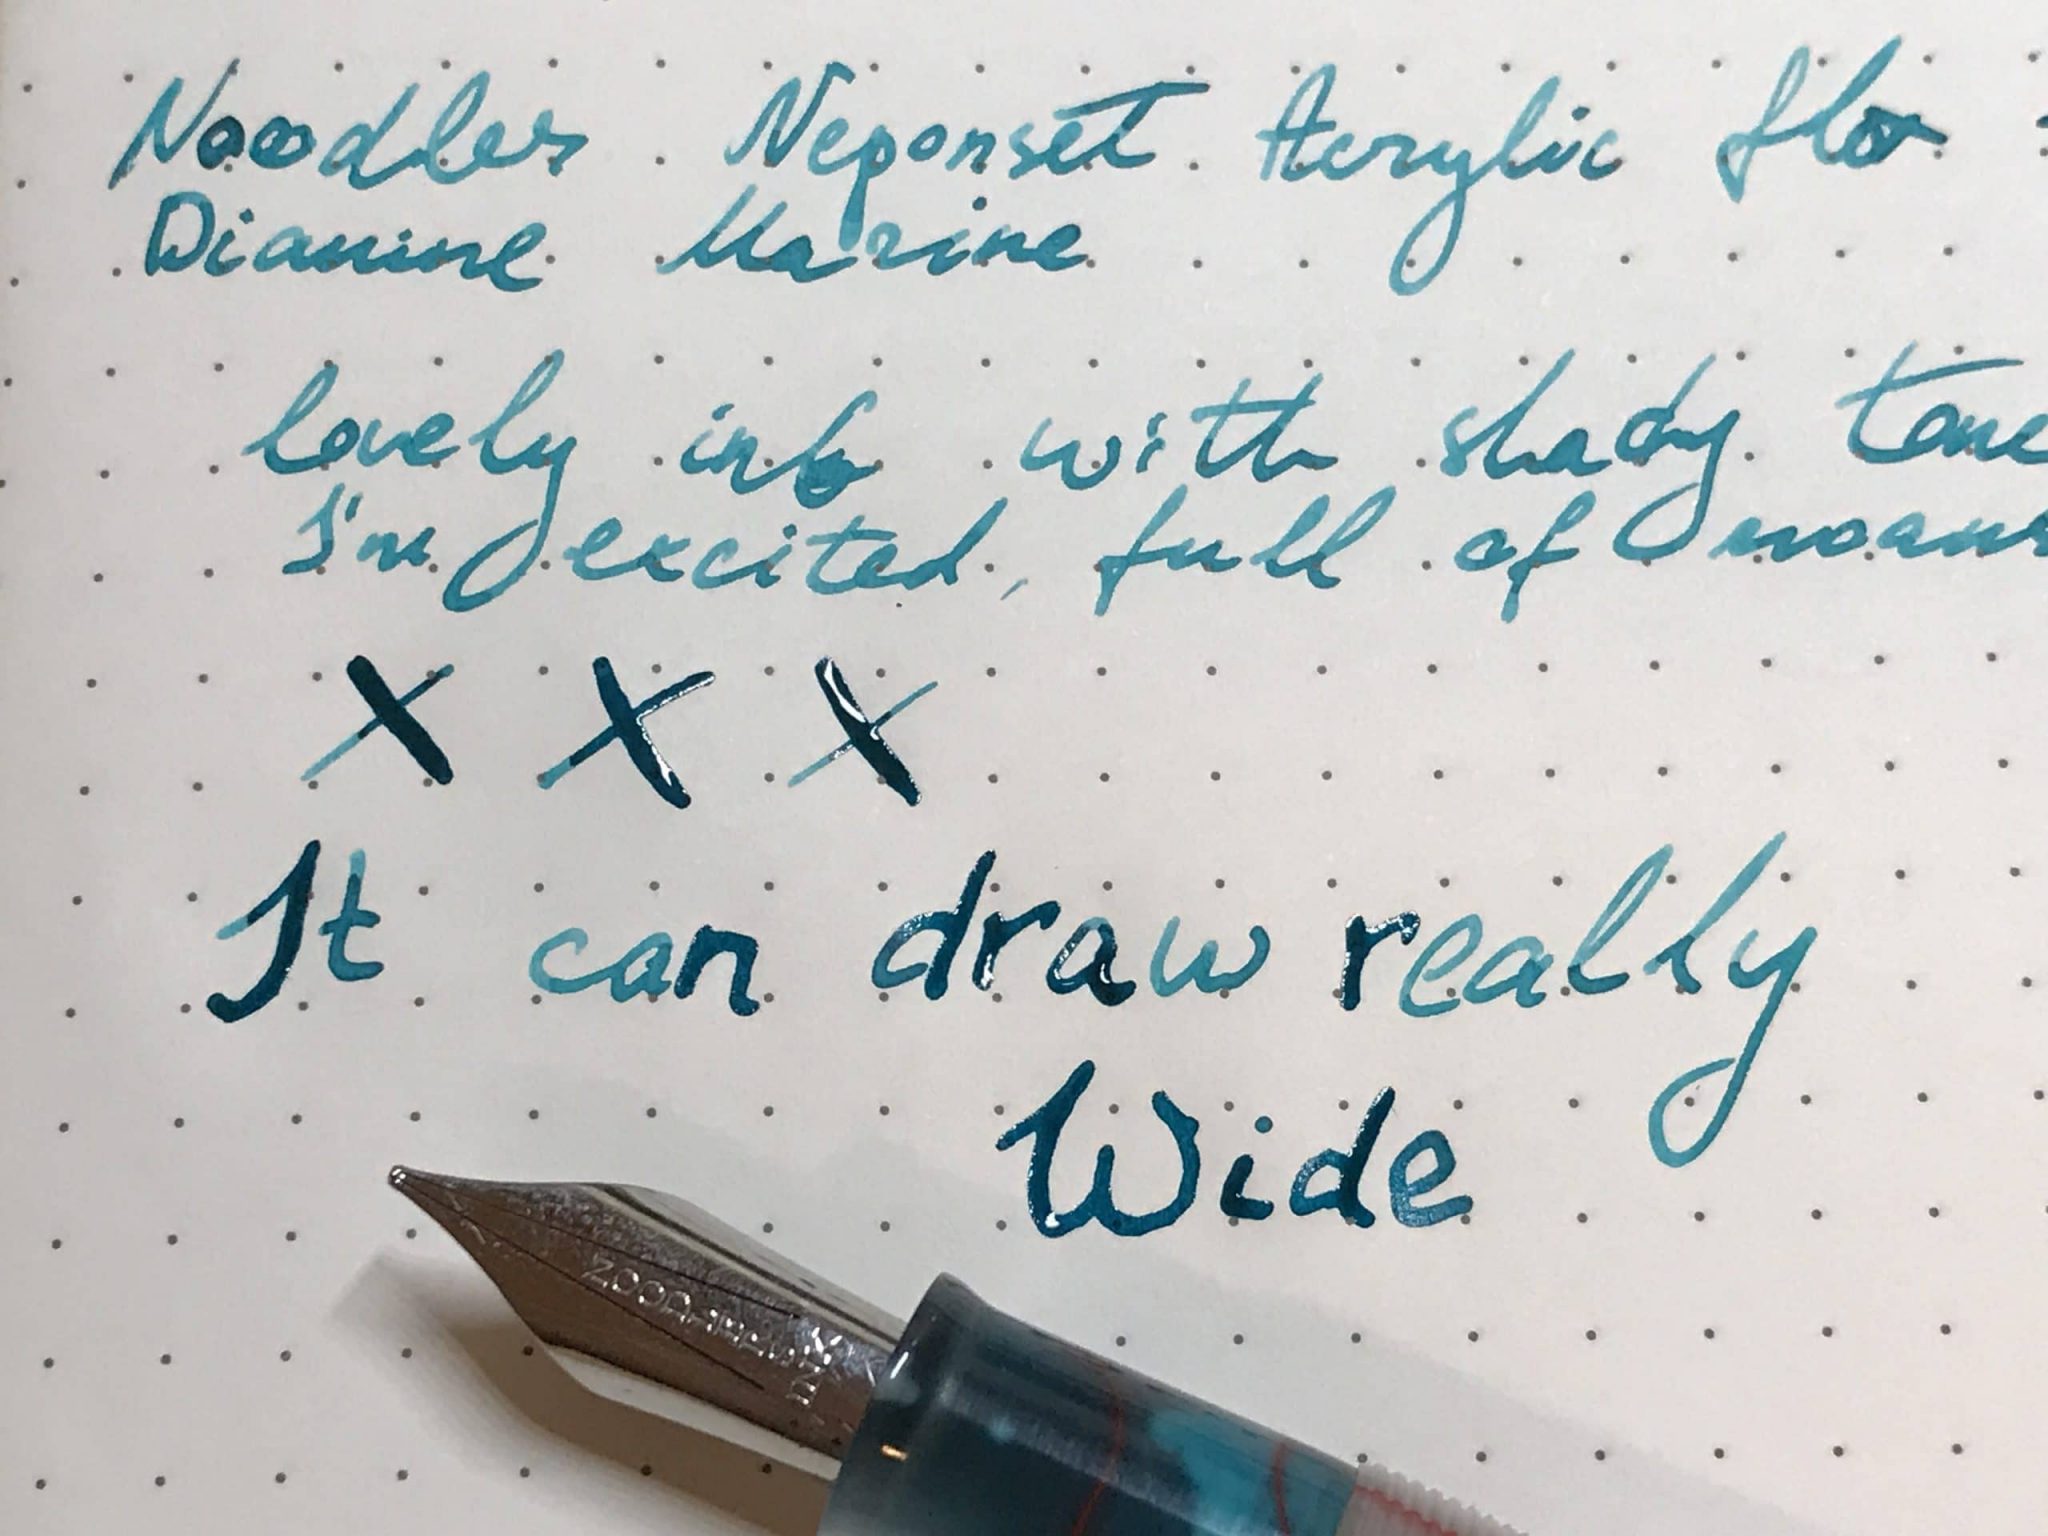 Noodles Neponset Acrylic flo
Diamine Marine
lovely ink with shady tone
I'm excited, full of
X X X
It can draw really
Wide
NOODLER'S INK